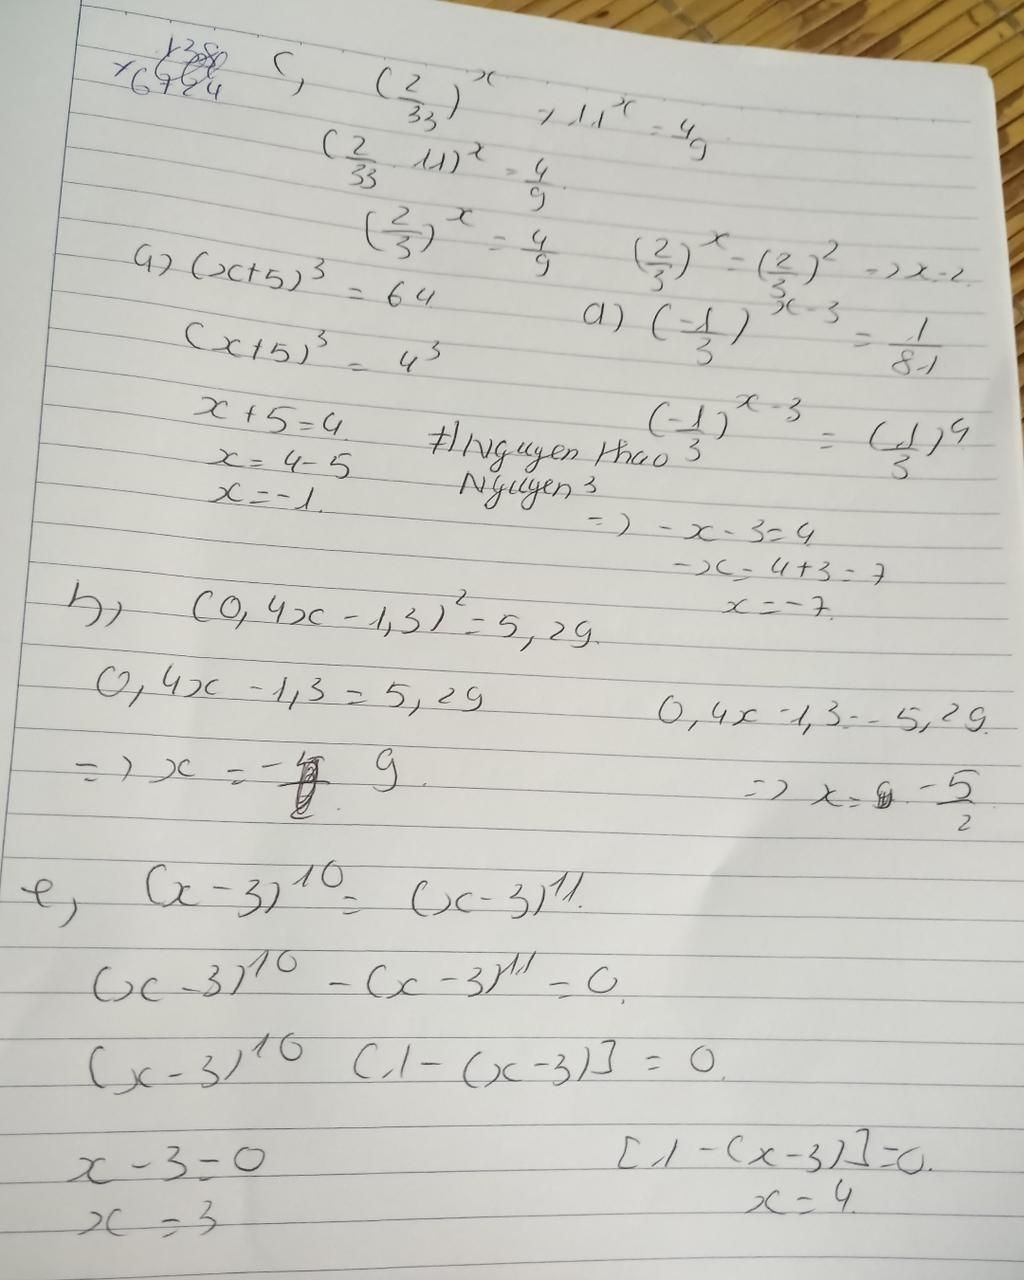 c, (2/33)^x · 11^x = 4/9
(2/33 · 11)^x = 4/9
(2/3)^x = 4/9 (2/3)^x = (2/3)^2 => x = 2
a) (x+5)^3 = 64
(x+5)^3 = 4^3
x + 5 = 4
x = 4 - 5
x = -1.
d) (-1/3)^x-3 = 1/81
(-1/3)^x-3 = (1/3)^4
=> -x - 3 = 4
-x = 4 + 3 = 7
x = -7.
#Nguyen thao
Nguyen 3
b, (0,4x - 1,3)^2 = 5,29
0,4x - 1,3 = 5,29 0,4x - 1,3 = -5,29
=> x = 9 => x = -5/2
e, (x - 3)^10 = (x - 3)^11.
(x - 3)^10 - (x - 3)^11 = 0.
(x - 3)^10 [1 - (x - 3)] = 0.
x - 3 = 0 [1 - (x - 3)] = 0.
x = 3 x = 4.